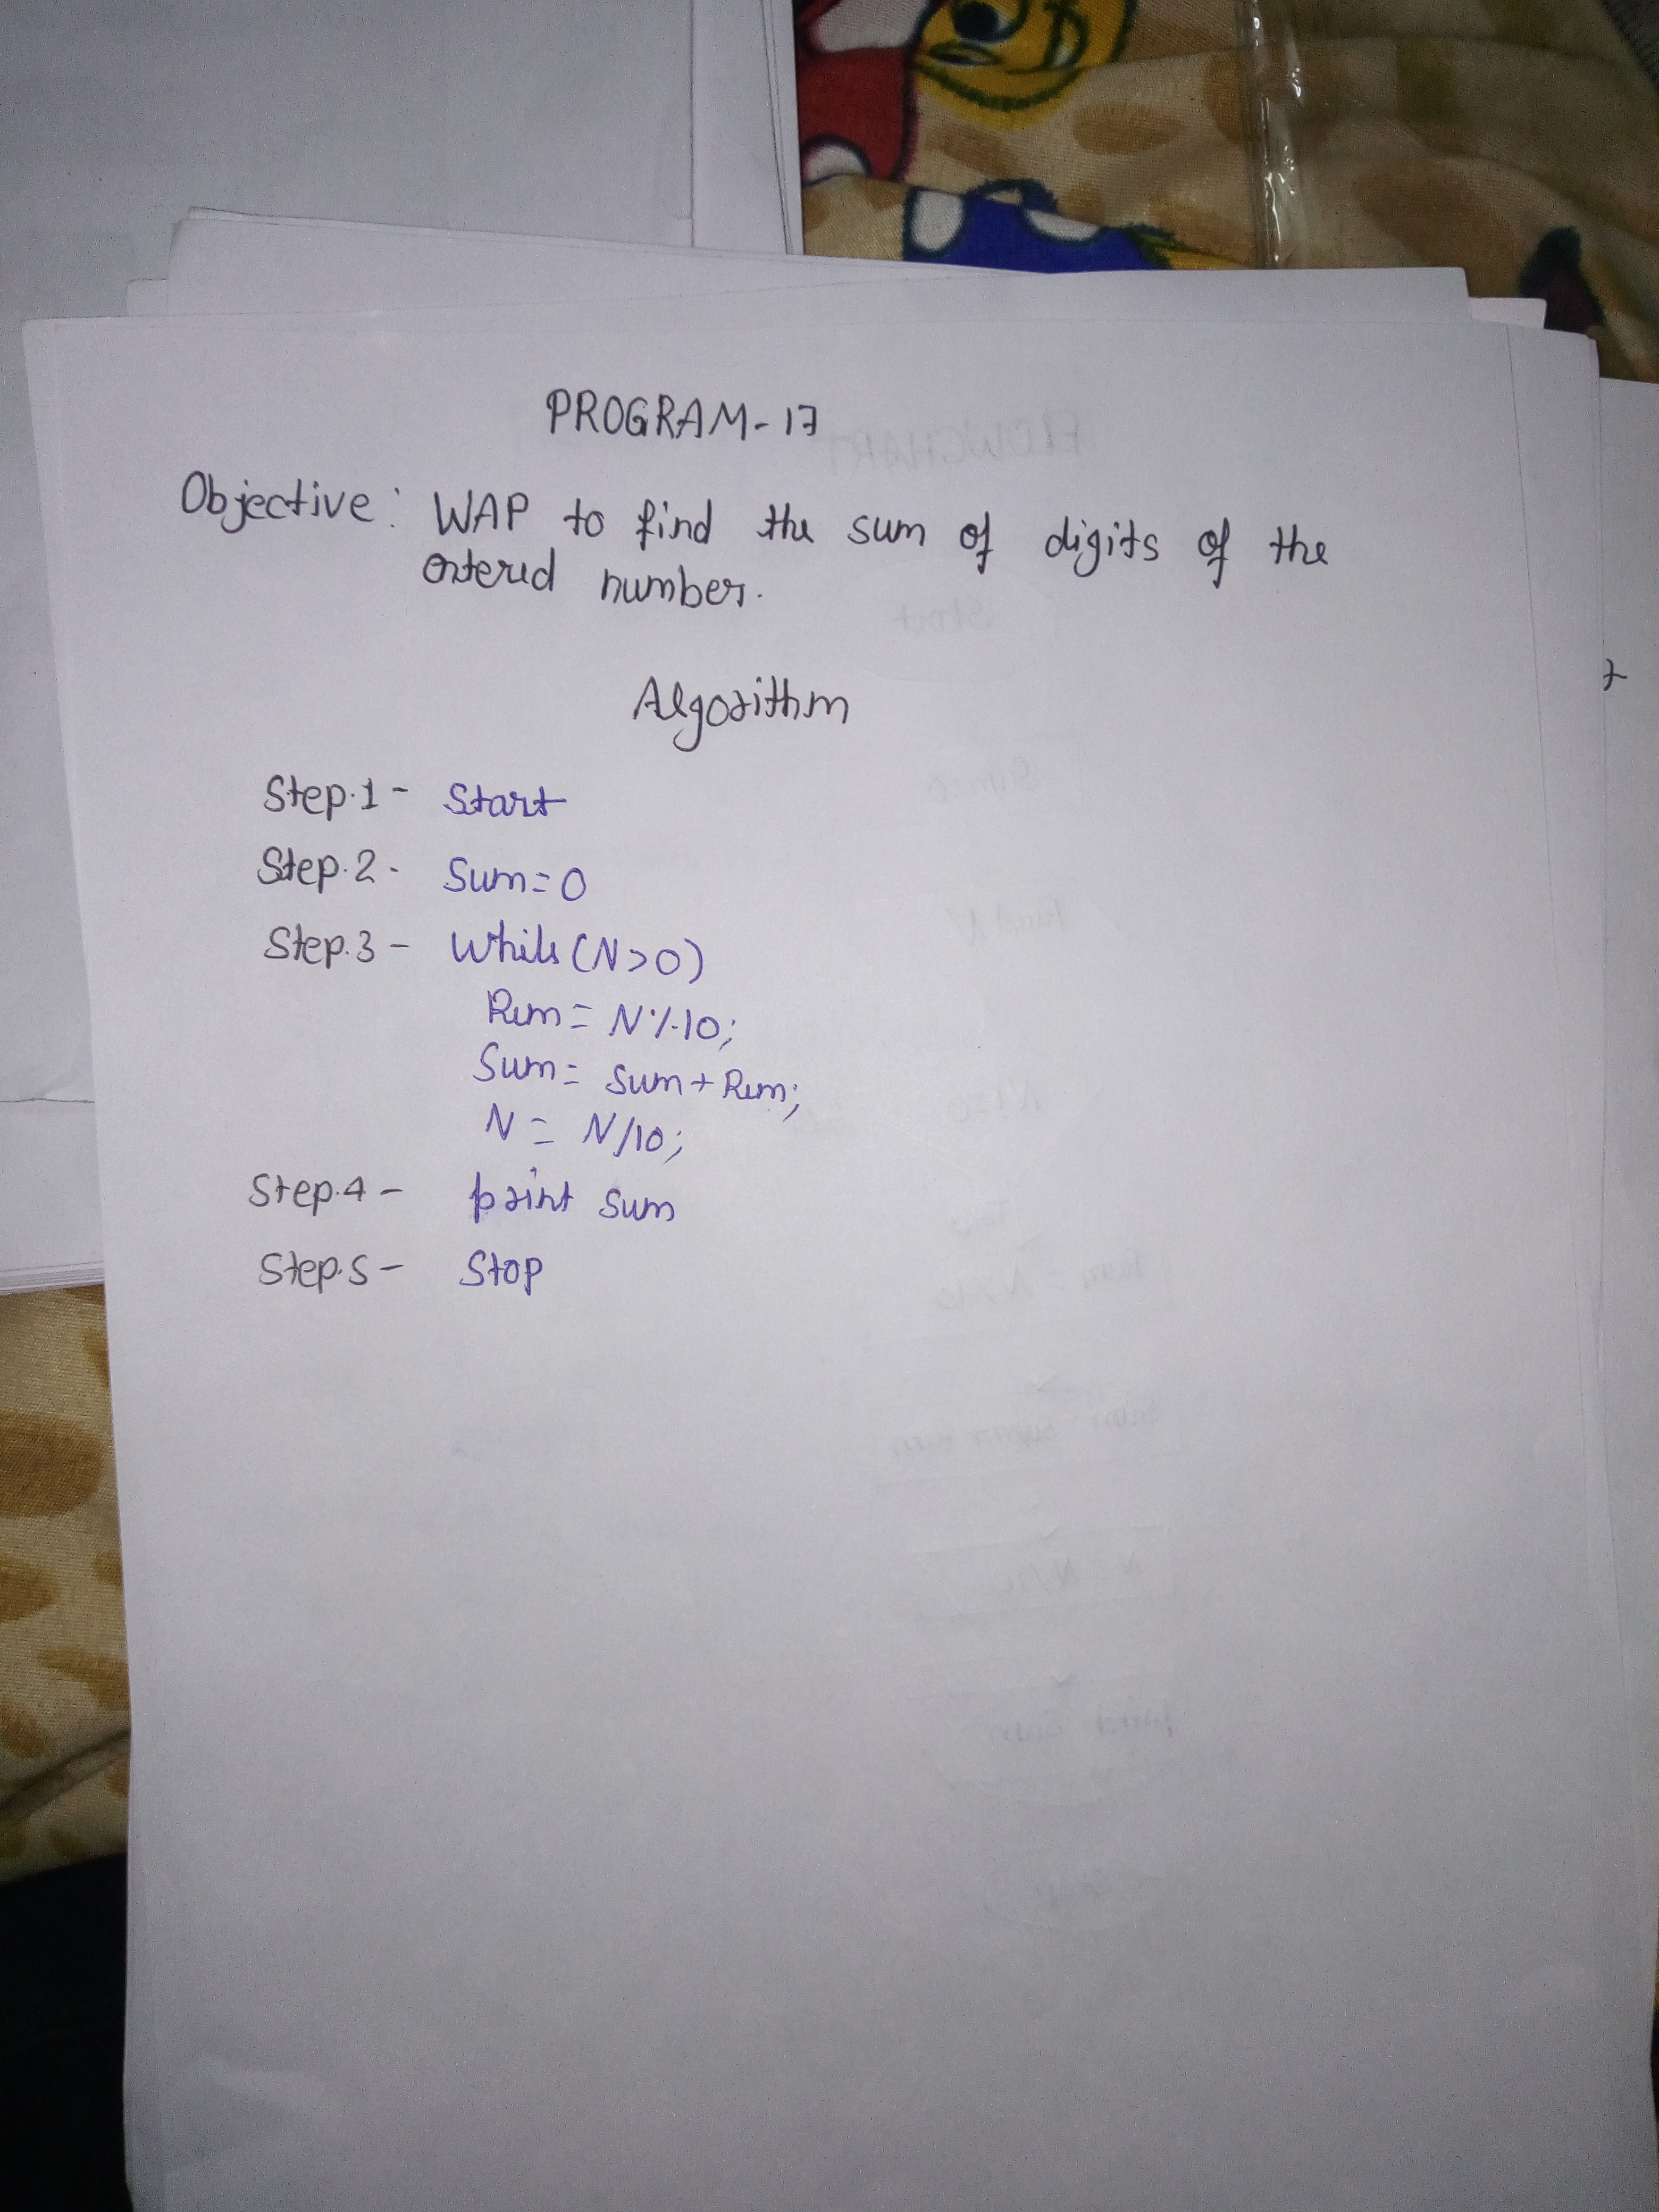 PROGRAM-17
Objective: WAP to find the sum of digits of the
entered number.
Algorithm
Step.1- Start
Step.2- Sum=0
Step.3- While(N>0)
Rem= N%10;
Sum= Sum+Rem;
N= N/10;
Step.4- print sum
Step.5- Stop